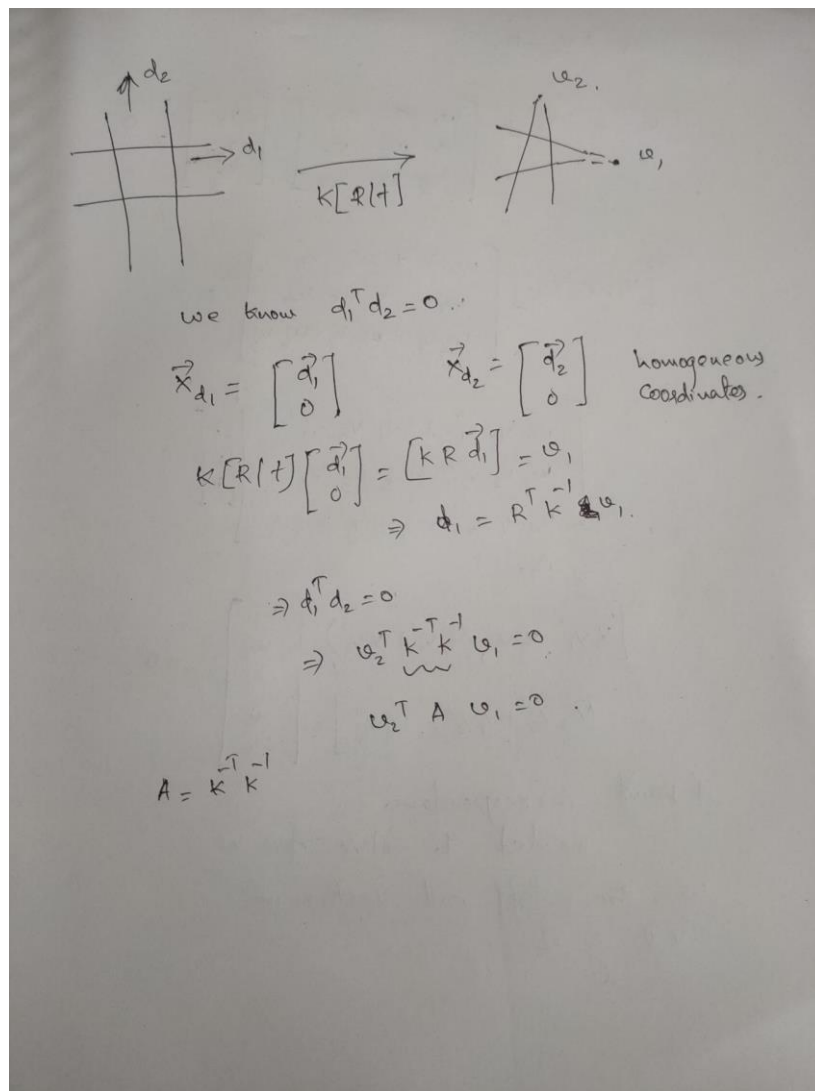 d₂
d₁
K[R|t]
v₂.
v₁
we know d₁ᵀd₂ = 0.
x⃗_d₁ = [d⃗₁ 0] x⃗_d₂ = [d⃗₂ 0] homogeneous coordinates.
K[R|t] [d⃗₁ 0] = [K R d⃗₁] = v₁
⇒ d₁ = Rᵀ K⁻¹ v₁.
⇒ d₁ᵀd₂ = 0
⇒ v₂ᵀ K⁻ᵀ K⁻¹ v₁ = 0
v₂ᵀ A v₁ = 0.
A = K⁻ᵀ K⁻¹